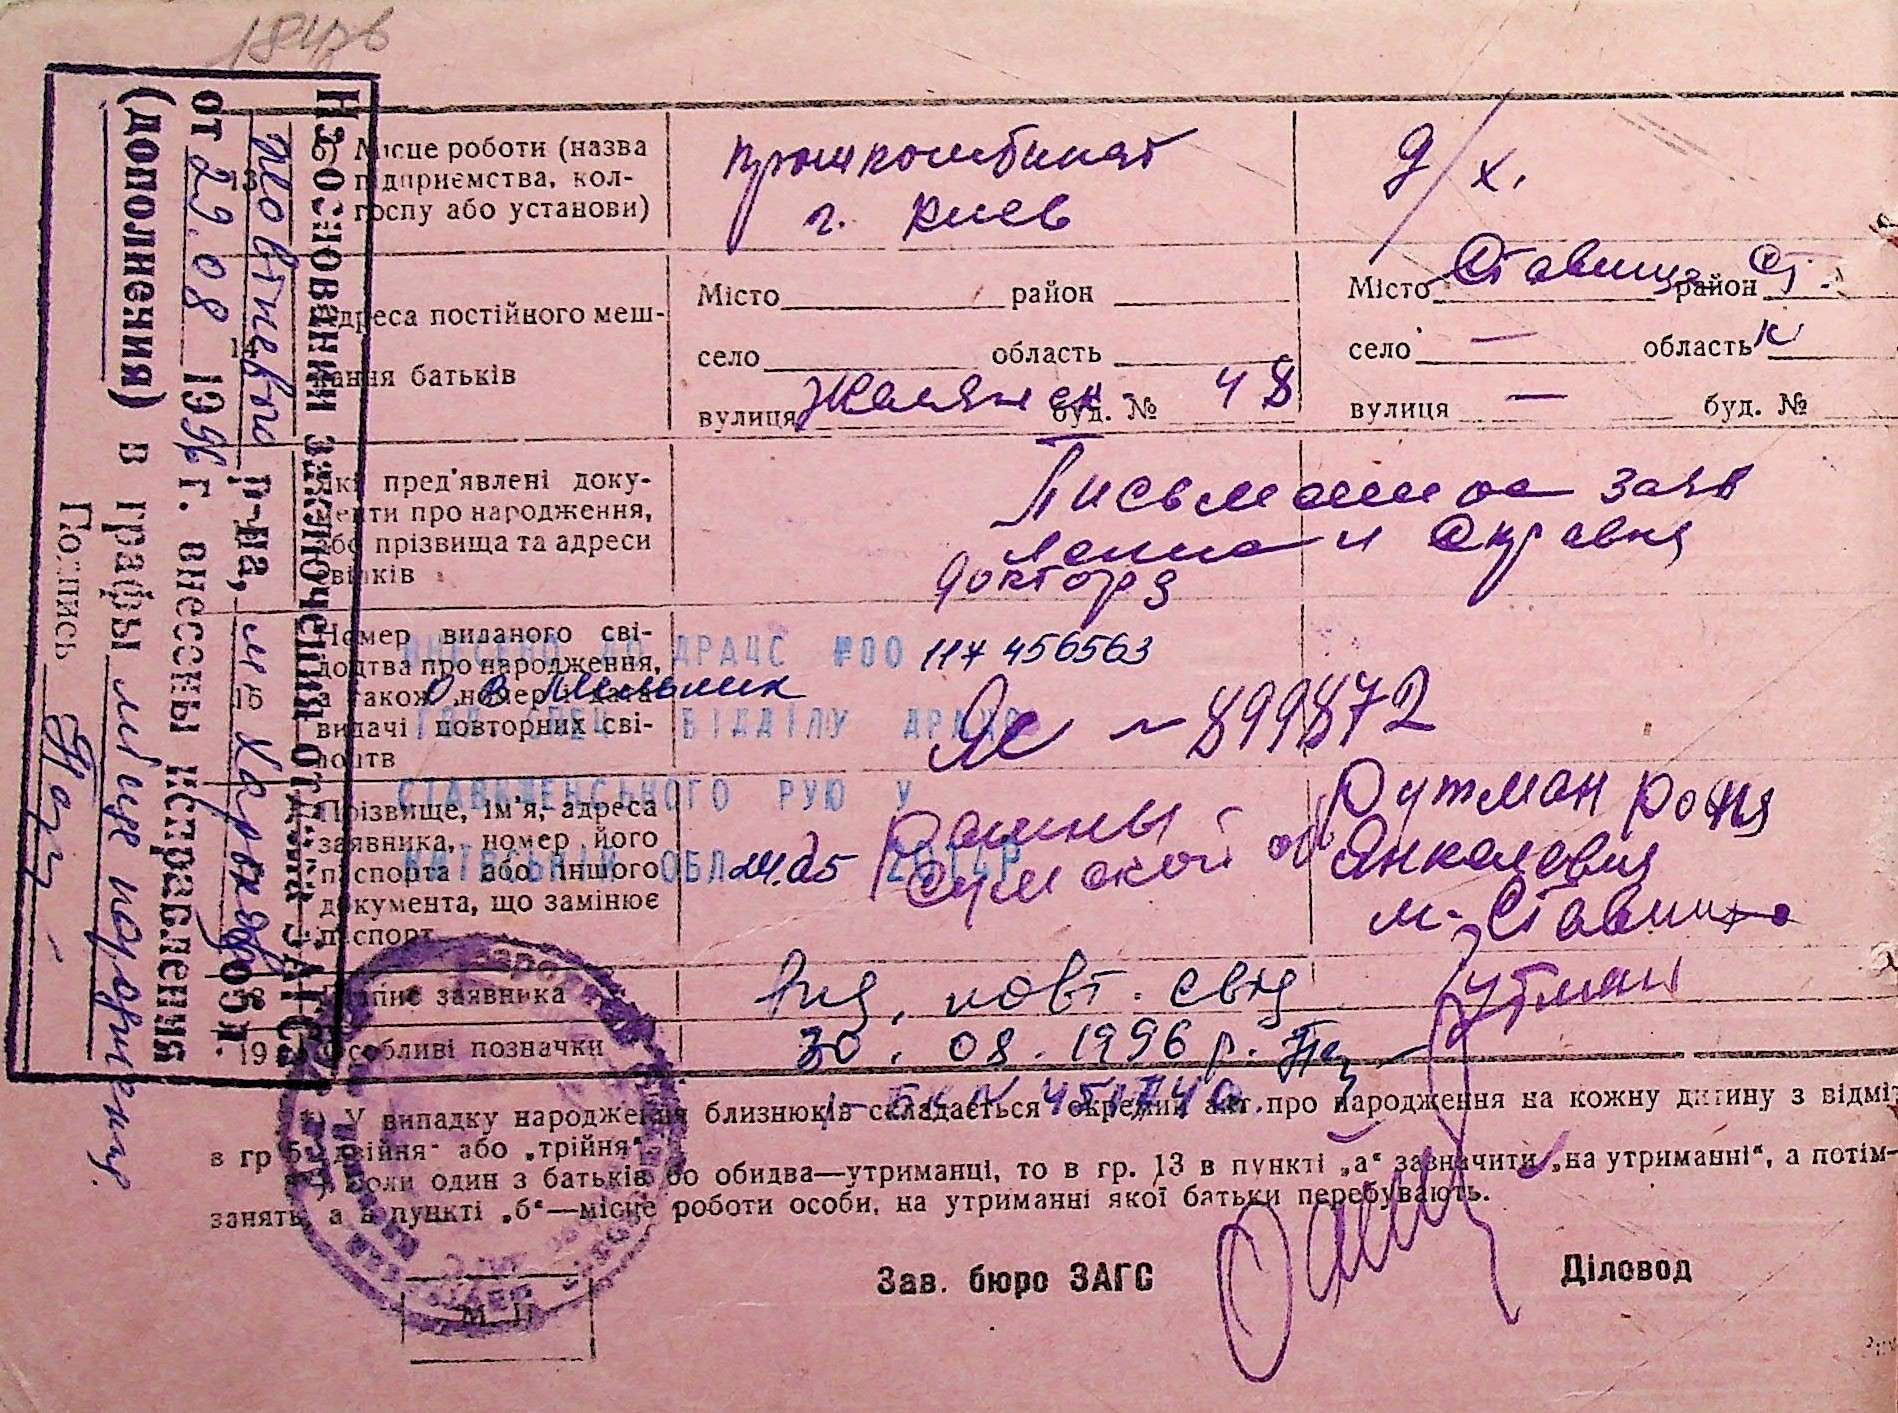 На основании заключения отдела ЗАГС
р-на, м. Харькова обл.
от 29.08 1996 г. внесены исправления
(дополнения) в графы місце народження
Подпись
13 Місце роботи (назва
підприємства, кол-
госпу або установи)
промкомбинат
г. Киев
д/х.
14 Адреса постійного меш-
кання батьків
Місто район
село область
вулиця Жилянск. буд. № 48
Місто Ставище район Ст.
село — область К
вулиця — буд. №
Які пред'явлені доку-
менти про народження,
або прізвища та адреси
свідків
Письменное заяв
ление и справка
доктора
16 Номер виданого сві-
доцтва про народження,
а також номер і дата
видачі повторних сві-
доцтв
ВНЕСЕНО ДО ДРАЦС №00 117 456563
О В Мельник
ВІДДІЛУ ДРАЦС
СТАВИЩЕНСЬКОГО РУЮ У
КИЇВСЬКІЙ ОБЛ 24.05 2014Р
ЯС № 899872
Прізвище, ім'я, адреса
заявника, номер його
паспорта або іншого
документа, що замінює
паспорт
Ромны
Сумской об
Рутман Роня
Янкелевна
м. Ставище
18 Підпис заявника
Рутман
19 Особливі позначки
Вид. повт. свід
30. 08. 1996 р.
1-БК № 451740.
*) У випадку народження близнюків складається окремий акт про народження на кожну дитину з відміт
в гр „двійня“ або „трійня“.
Коли один з батьків або обидва—утриманці, то в гр. 13 в пункті „а“ зазначити „на утриманні“, а потім-
занять, а в пункті „б“—місце роботи особи, на утриманні якої батьки перебувають.
Зав. бюро ЗАГС
Діловод
М. П.